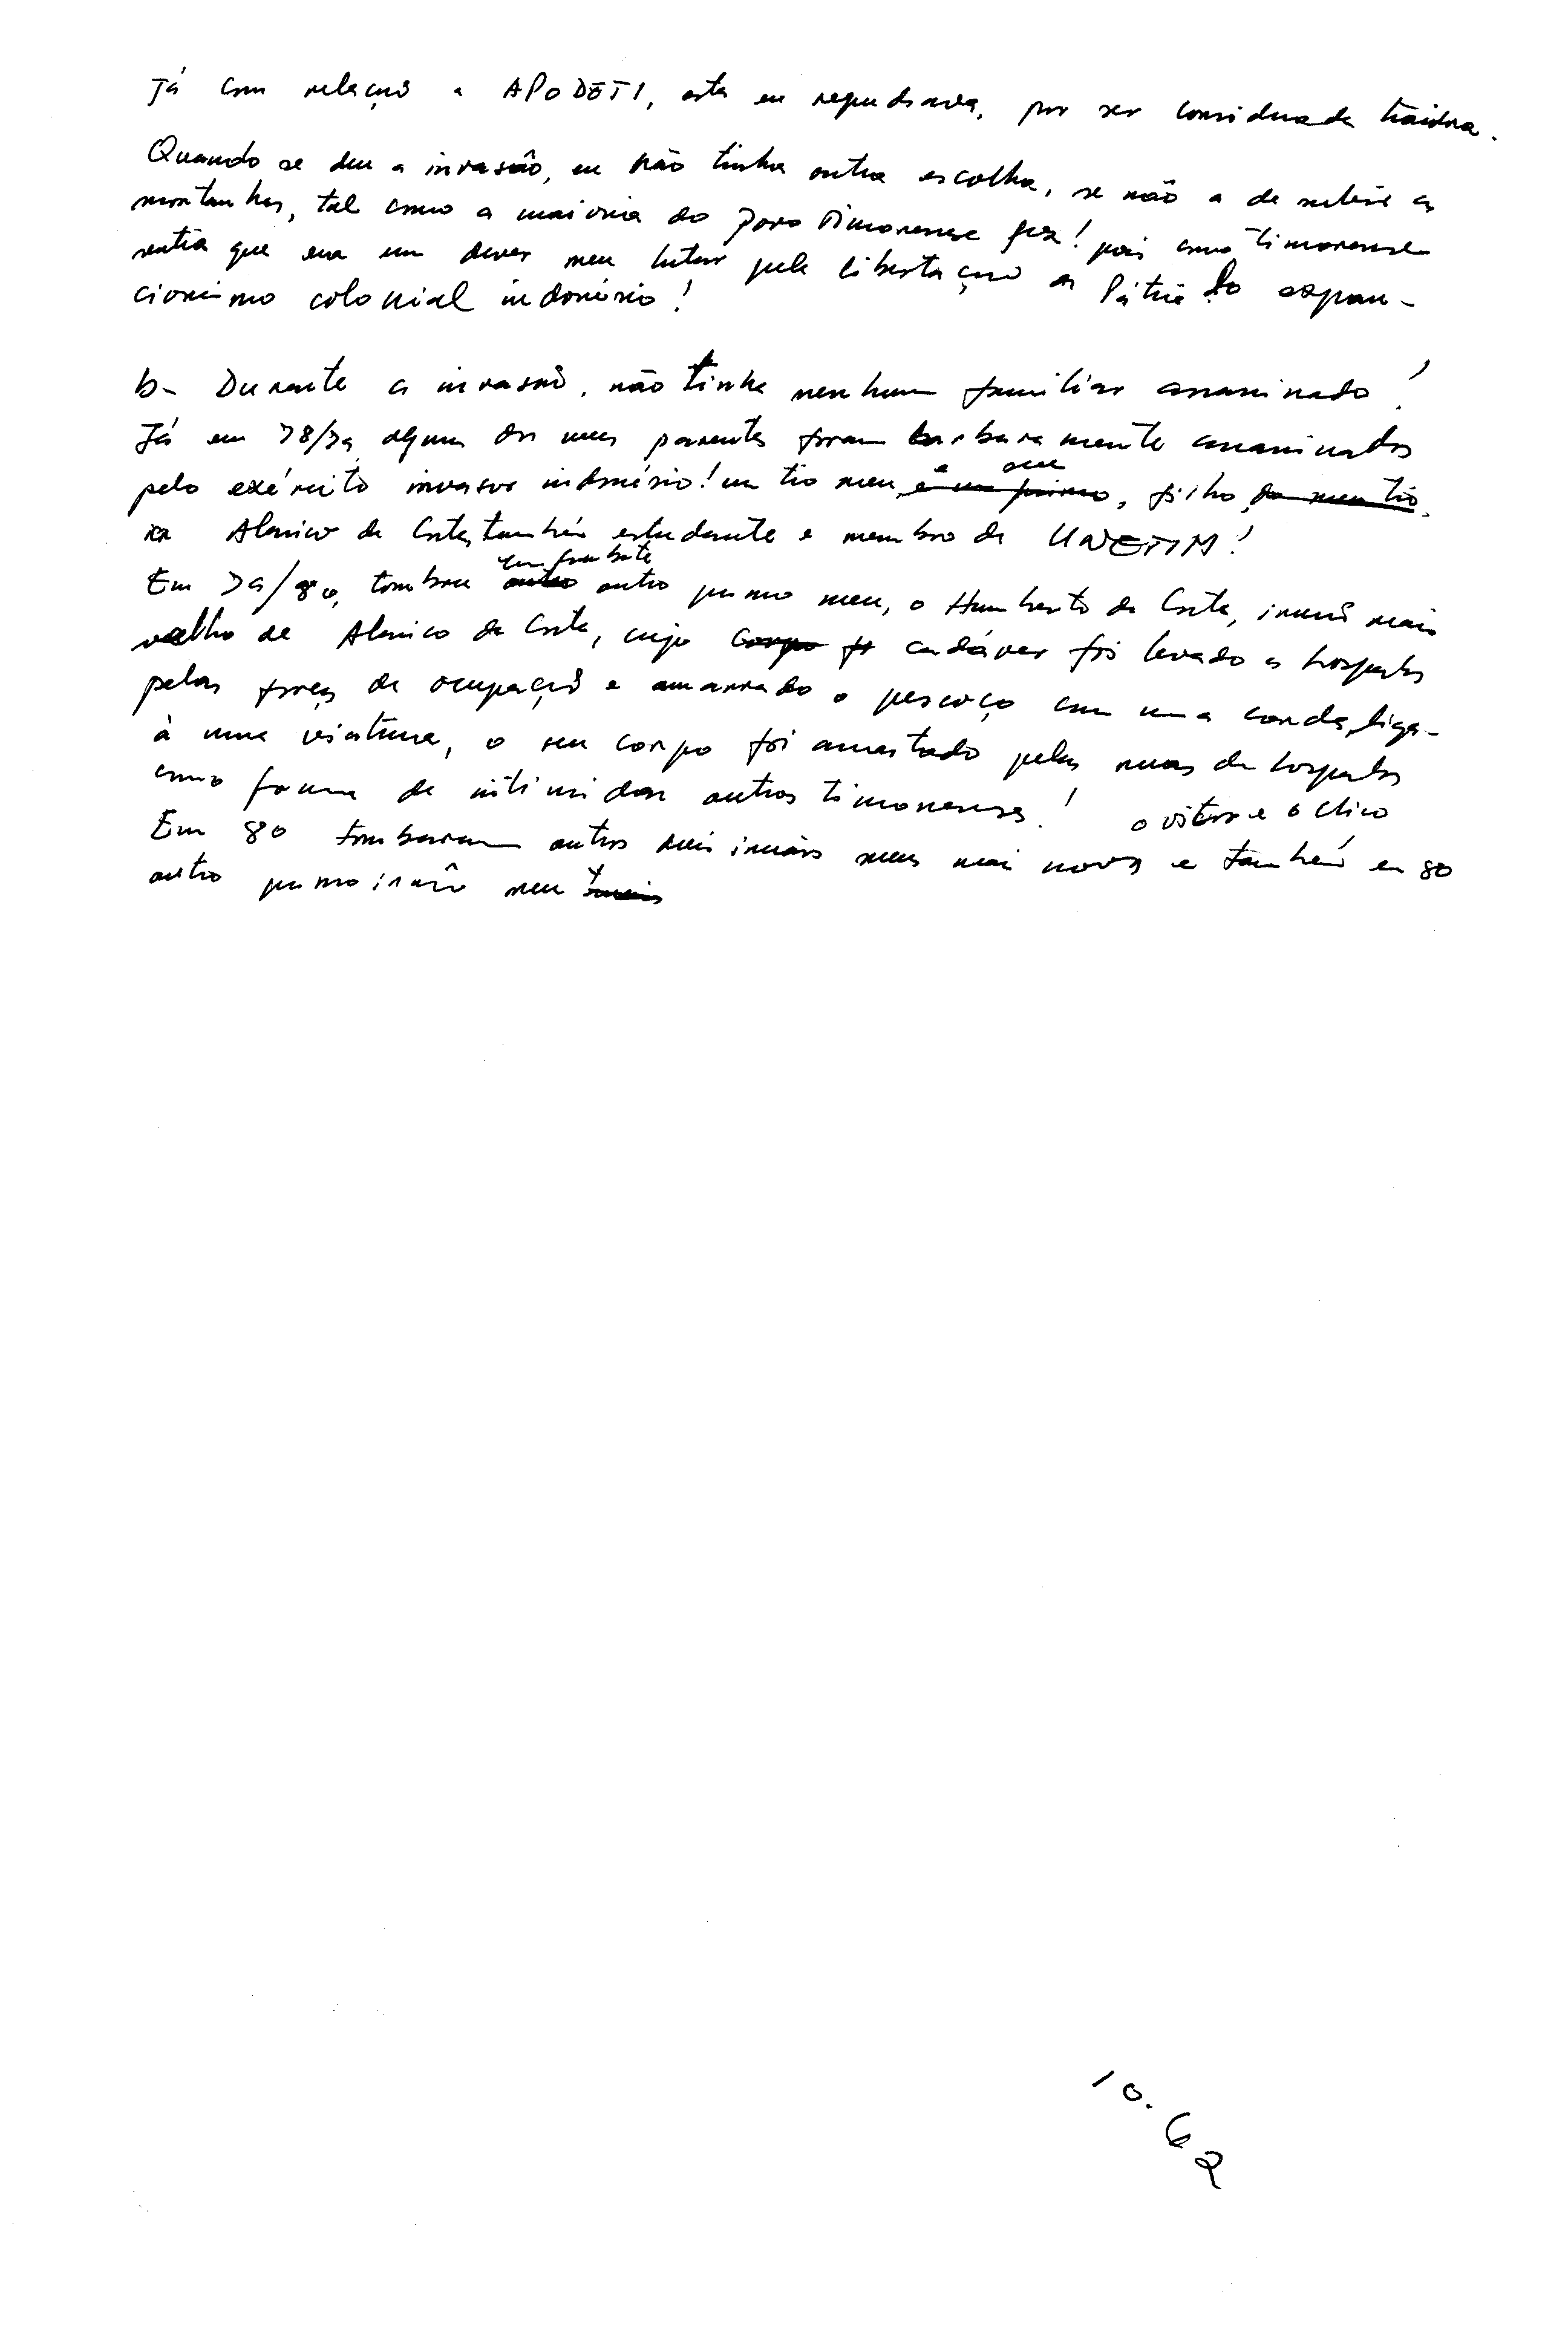 Já com relação a APODETI, esta eu repudiava, por ser considerada traidora.
Quando se deu a invasão, eu não tinha outra escolha, se não a de subir as
montanhas, tal como a maioria do povo timorense fez! pois como timorense
sentia que era um dever meu lutar pela libertação da Pátria do expan-
cionismo colonial indonésio!
b- Durante a invasão, não tinha nenhum familiar assassinado!
Já em 78/79 alguns dos meus parentes foram barbaramente assassinados
pelo exército invasor indonésio! um tio meu e seu filho,
Alarico da Costa, também estudante e membro da UNETIM!
Em 79/80, tombou em combate outro primo meu, o Humberto da Costa, irmão mais
velho de Alarico da Costa, cujo cadáver foi levado a Lospalos
pelas forças de ocupação e amarrado o pescoço com uma corda, liga-
à uma viatura, o seu corpo foi arrastado pelas ruas de Lospalos
como forma de intimidar outros timorenses! o Vitor e o
Em 80 tombaram outros dois irmãos meus mais novos e também em 80
outro primo irmão meu
10.62